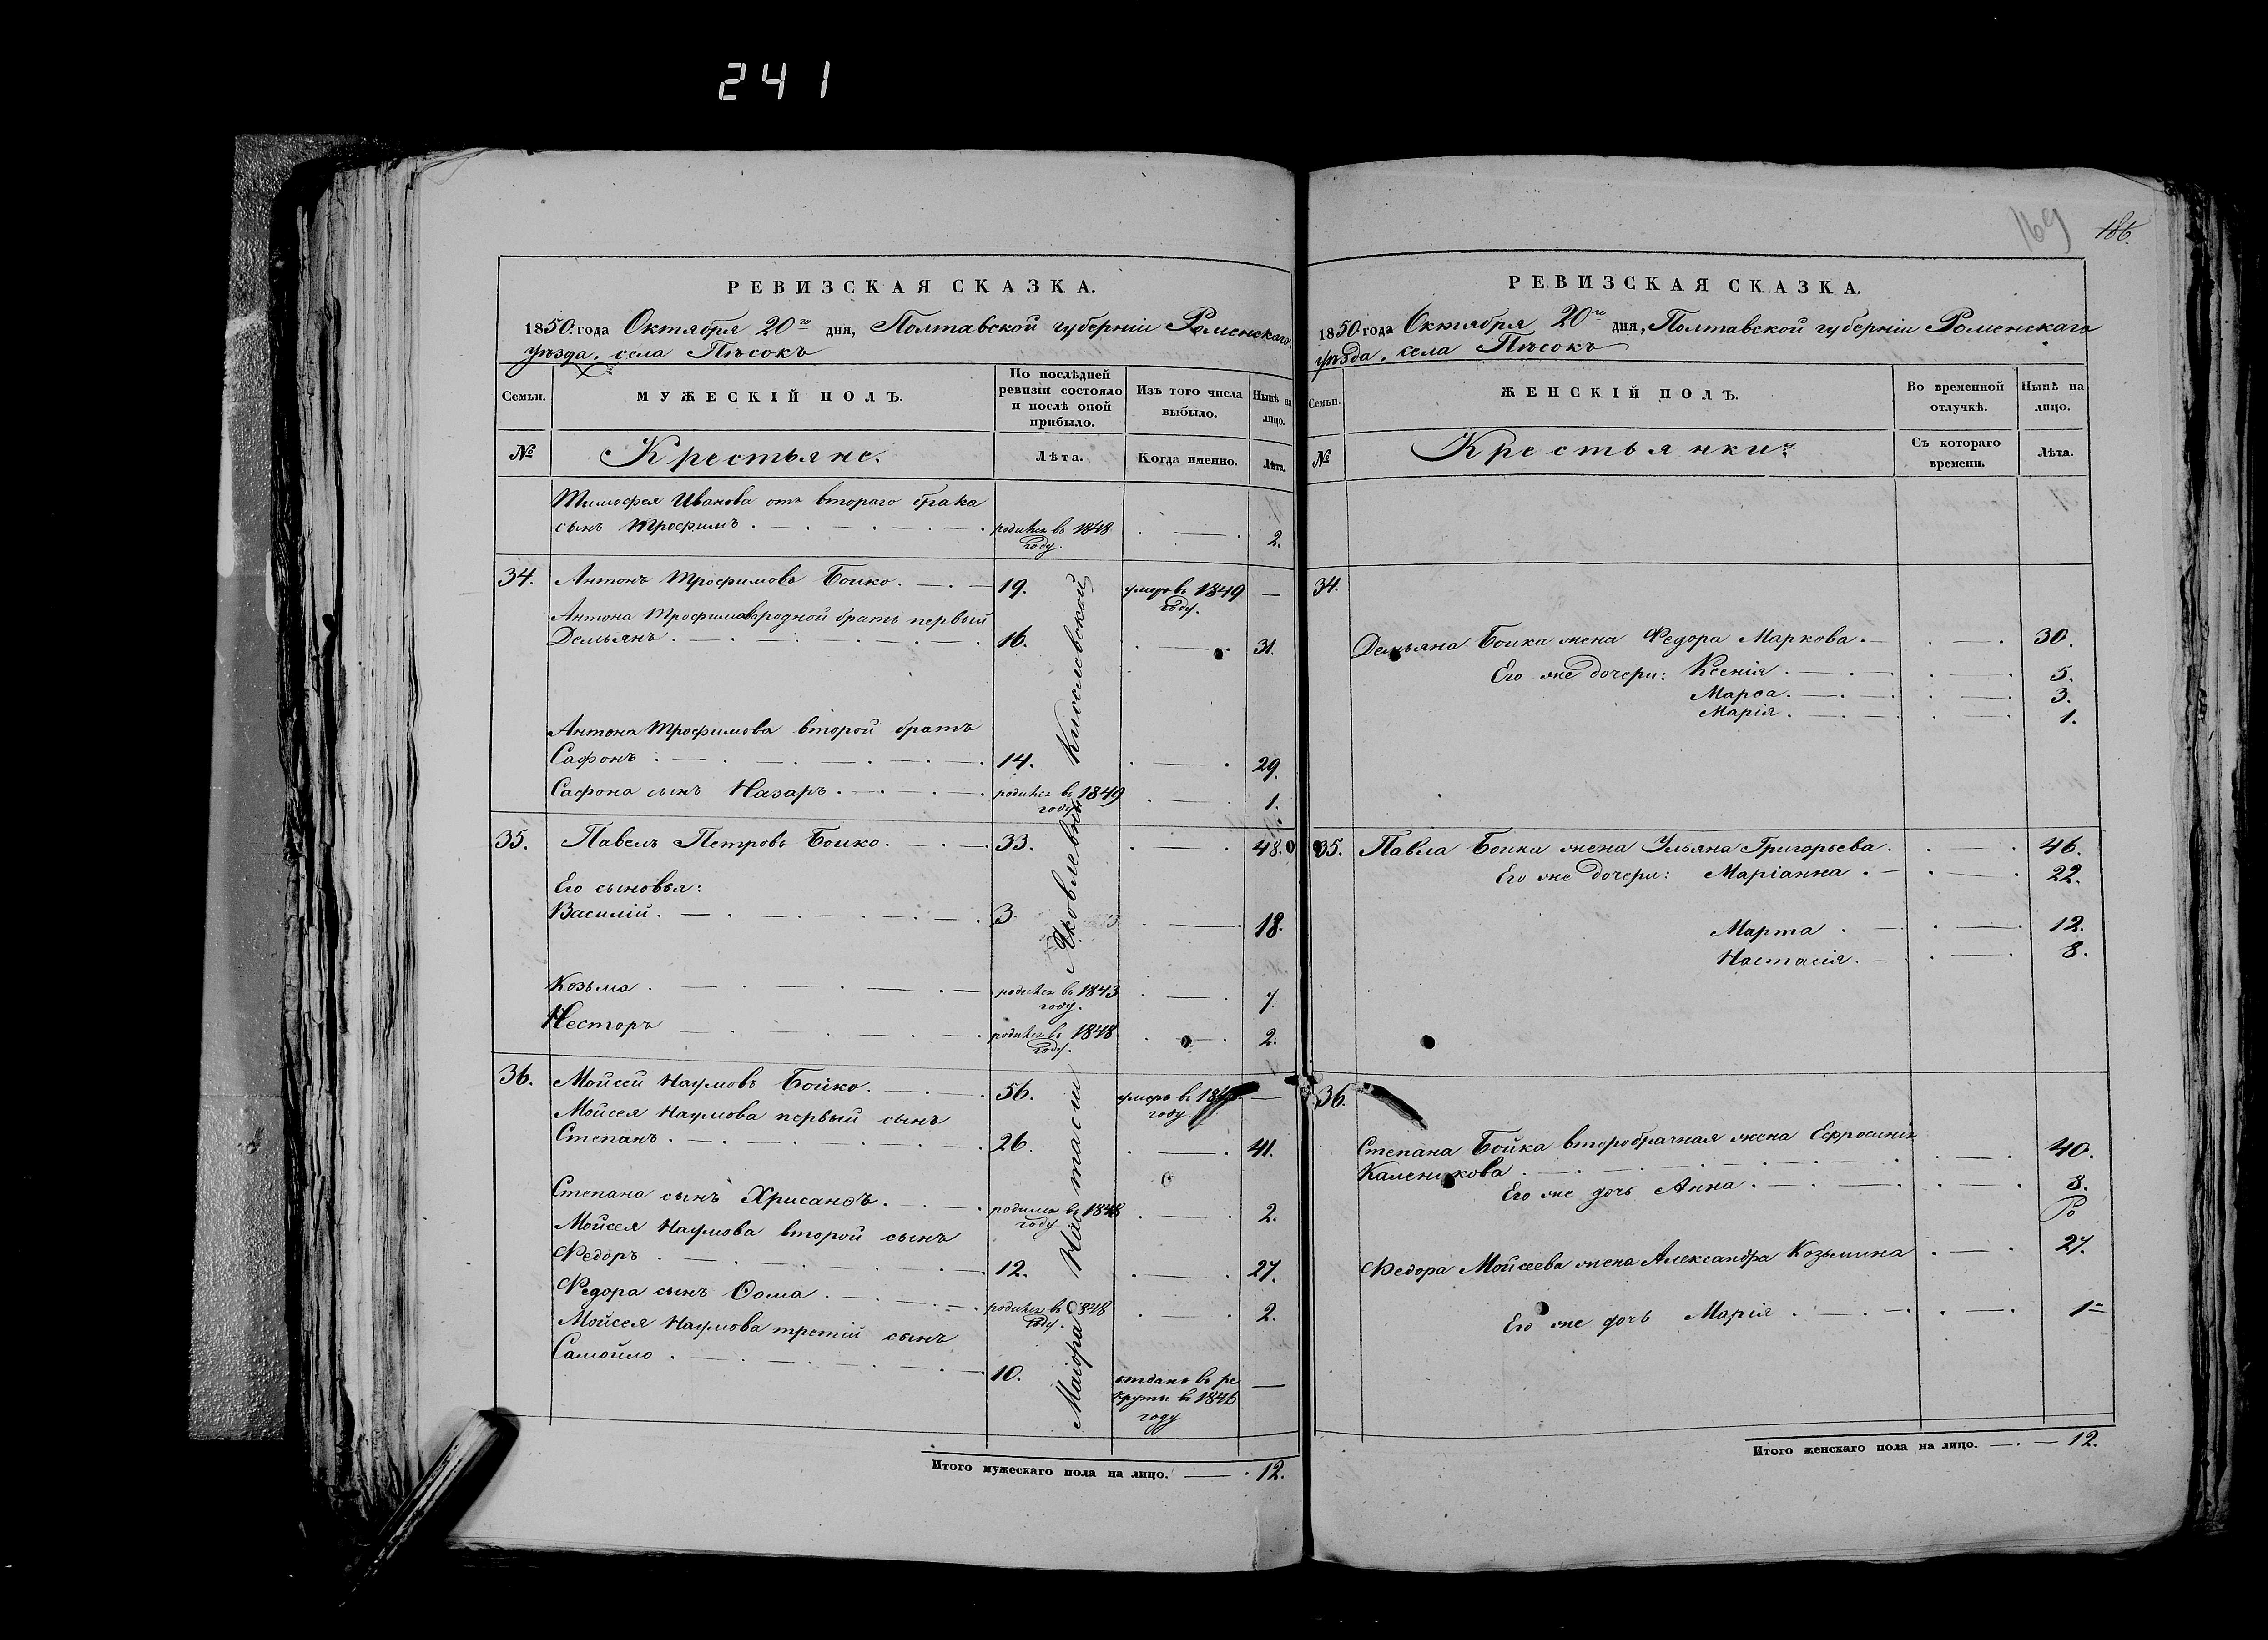 241
169
186.
РЕВИЗСКАЯ СКАЗКА.
1850. года Октября 20го дня, Полтавской губерніи Роменскаго
уѣзда. села Пѣсокъ
Семьи.
МУЖЕСКІЙ ПОЛЪ.
По послѣдней
ревизіи состояло
и послѣ оной
прибыло.
Изъ того числа
выбыло.
Нынѣ на
лицо.
№
Крестьяне.
Лѣта.
Когда именно.
Лѣта.
Тимофея Иванова отъ втораго брака
сынъ Трофимъ . родился въ 1848 2.
году.
34. Антонъ Трофимовъ Бойко. 19. умеръ въ 1849 —
году.
Антона Трофимова родной братъ первый
Демьянъ . 16. 31.
Антона Трофимова второй братъ
Сафонъ . 14. 29.
Сафона сынъ Назаръ . родился въ 1849 1.
году
35. Павелъ Петровъ Бойко. 33. 48.
Его сыновья:
Василій. 3. 18.
Козьма . родился въ 1843 7.
году.
Несторъ родился въ 1848 2.
году.
36. Мойсей Наумовъ Бойко. 56. умеръ въ —
году.
Мойсея Наумова первый сынъ
Степанъ . 26. 41.
Степана сынъ Хрисанѳъ. родился въ 1848 2.
году
Мойсея Наумова второй сынъ
Федоръ . 12. 27.
Федора сынъ Ѳома . родился въ 1848 2.
году.
Мойсея Наумова третій сынъ
Самойло . 10. отданъ въ ре —
круты въ 1846
году
Маіора Анастасіи Яковлевны Кисловской
Итого мужескаго пола на лицо. 12.
РЕВИЗСКАЯ СКАЗКА.
1850. года Октября 20го дня, Полтавской губерніи Роменскаго
уѣзда. села Пѣсокъ
Семьи.
ЖЕНСКІЙ ПОЛЪ.
Во временной
отлучкѣ.
Нынѣ на
лицо.
№
Крестьянки.
Съ котораго
времени.
Лѣта.
34.
Демьяна Бойка жена Федора Маркова. 30.
Его же дочери: Ксенія . 5.
Марѳа . 3.
Марія . 1.
35. Павла Бойки жена Ульяна Григорьева. 46.
Его же дочери: Маріанна . 22.
Марта . 12.
Настасія. 8.
36.
Степана Бойка второбрачная жена Ефросинія
Каленикова . 40.
Его же дочь Анна . 8.
Федора Мойсеева жена Александра Козьмина 27.
Его же дочь Марія . 1
Итого женскаго пола на лицо. 12.